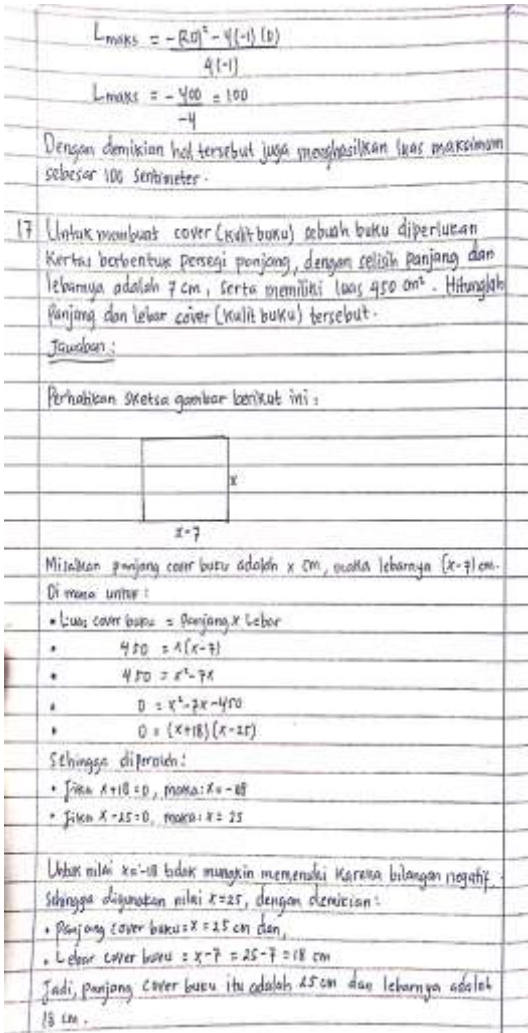 Lmaks = -(20)² - 4(-1)(0)
4(-1)
Lmaks = - 400 = 100
-4
Dengan demikian hal tersebut juga menghasilkan luas maksimum
sebesar 100 Sentimeter.
17 Untuk membuat cover (kulit buku) sebuah buku diperlukan
kertas berbentuk persegi panjang, dengan selisih panjang dan
lebarnya adalah 7 cm, serta memiliki luas 450 cm². Hitunglah
panjang dan lebar cover (kulit buku) tersebut.
Jawaban :
Perhatikan sketsa gambar berikut ini :
x
x-7
Misalkan panjang cover buku adalah x cm, maka lebarnya (x-7) cm.
Di mana untuk :
• Luas cover buku = Panjang x Lebar
• 450 = x(x-7)
• 450 = x²-7x
• 0 = x²-7x-450
• 0 = (x+18)(x-25)
Sehingga diperoleh:
• Jika x+18=0, maka: x=-18
• Jika x-25=0, maka: x=25
Untuk nilai x=-18 tidak mungkin memenuhi karena bilangan negatif.
Sehingga digunakan nilai x=25, dengan demikian:
• Panjang cover buku = x = 25 cm dan,
• Lebar cover buku = x-7 = 25-7 = 18 cm
Jadi, panjang cover buku itu adalah 25 cm dan lebarnya adalah
18 cm.